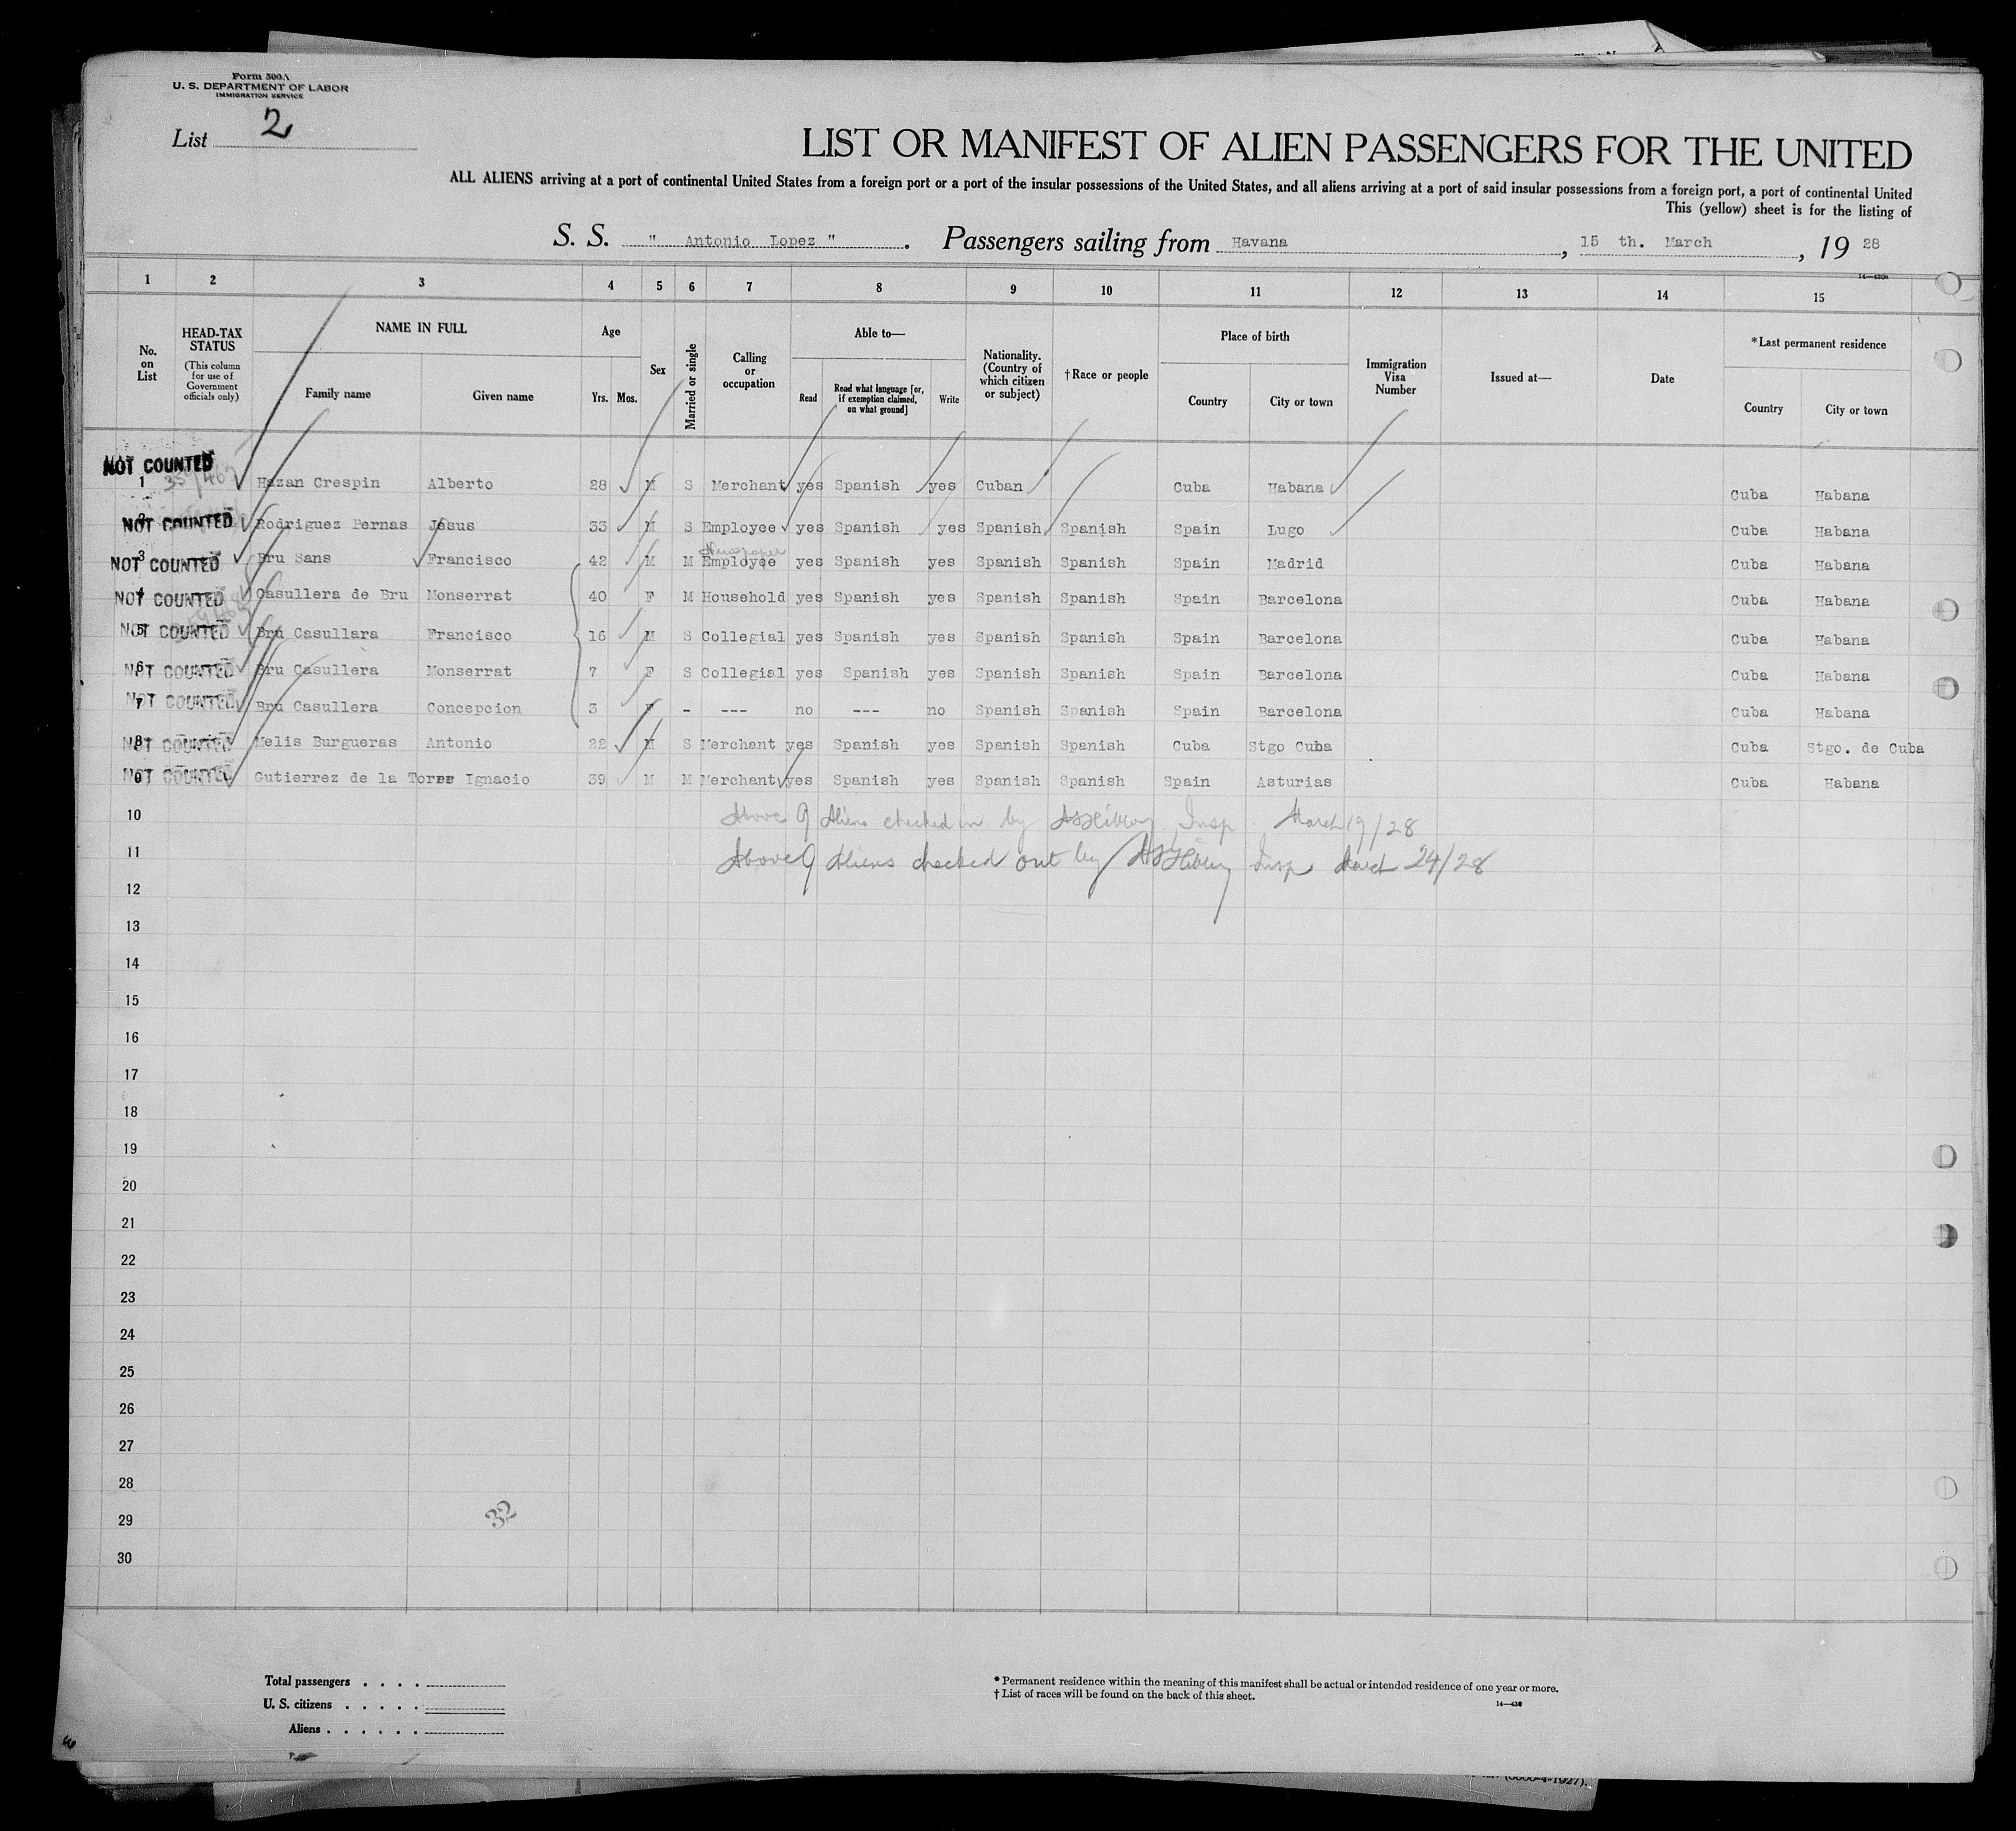 Form 500A
U. S. DEPARTMENT OF LABOR
IMMIGRATION SERVICE
List 2
LIST OR MANIFEST OF ALIEN PASSENGERS FOR THE UNITED
ALL ALIENS arriving at a port of continental United States from a foreign port or a port of the insular possessions of the United States, and all aliens arriving at a port of said insular possessions from a foreign port, a port of continental United
This (yellow) sheet is for the listing of
S. S. " Antonio Lopez ". Passengers sailing from Havana, 15 th. March, 19 28
1 2 3 4 5 6 7 8 9 10 11 12 13 14 15
No. on List
HEAD-TAX STATUS
(This column for use of Government officials only)
NAME IN FULL
Family name Given name
Age
Yrs. Mos.
Sex
Married or single
Calling or occupation
Able to—
Read
Read what language [or, if exemption claimed, on what ground]
Write
Nationality. (Country of which citizen or subject)
†Race or people
Place of birth
Country City or town
Immigration Visa Number
Issued at—
Date
*Last permanent residence
Country City or town
NOT COUNTED
1 Hazan Crespin Alberto 28 M S Merchant yes Spanish yes Cuban Cuba Habana Cuba Habana
NOT COUNTED 2 Rodriguez Pernas Jesus 33 M S Employee yes Spanish yes Spanish Spanish Spain Lugo Cuba Habana
Newspaper
NOT COUNTED 3 Bru Sans Francisco 42 M M Employee yes Spanish yes Spanish Spanish Spain Madrid Cuba Habana
NOT COUNTED 4 Casullera de Bru Monserrat 40 F M Household yes Spanish yes Spanish Spanish Spain Barcelona Cuba Habana
NOT COUNTED 5 Bru Casullara Francisco 16 M S Collegial yes Spanish yes Spanish Spanish Spain Barcelona Cuba Habana
NOT COUNTED 6 Bru Casullera Monserrat 7 F S Collegial yes Spanish yes Spanish Spanish Spain Barcelona Cuba Habana
NOT COUNTED 7 Bru Casullera Concepcion 3 F - --- no --- no Spanish Spanish Spain Barcelona Cuba Habana
NOT COUNTED 8 Melis Burgueras Antonio 22 M S Merchant yes Spanish yes Spanish Spanish Cuba Stgo Cuba Cuba Stgo. de Cuba
NOT COUNTED 9 Gutierrez de la Torre Ignacio 39 M M Merchant yes Spanish yes Spanish Spanish Spain Asturias Cuba Habana
10 Above 9 Aliens checked in by Insp. March 19/28
11 Above 9 Aliens checked out by Insp March 24/28
12
13
14
15
16
17
18
19
20
21
22
23
24
25
26
27
28
29
30
32
Total passengers . . . .
U. S. citizens . . . . .
Aliens . . . . . .
* Permanent residence within the meaning of this manifest shall be actual or intended residence of one year or more.
† List of races will be found on the back of this sheet.
14—430